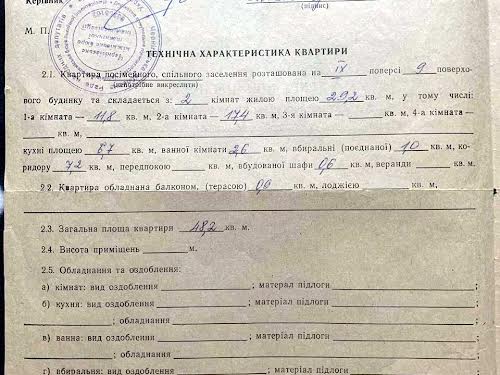 Керівник
(підпис)
М. П.
ТЕХНІЧНА ХАРАКТЕРИСТИКА КВАРТИРИ
2.1. Квартира посімейного, спільного заселення розташована на IX поверсі 9 поверхо-
(непотрібне викреслити)
вого будинку та складається з: 2 кімнат жилою площею 29,2 кв. м, у тому числі:
1-а кімната — 11,8 кв. м, 2-а кімната — 17,4 кв. м, 3-я кімната — кв. м, 4-а кімната —
кв. м,
кухні площею 8,7 кв. м, ванної кімнати 2,6 кв. м, вбиральні (поєднаної) 1,0 кв. м, ко-
ридору 7,2 кв. м, передпокою кв. м, вбудованої шафи 0,6 кв. м, веранди кв. м.
2.2. Квартира обладнана балконом, (терасою) 0,9 кв. м, лоджією кв. м,
2.3. Загальна площа квартири 48,2 кв. м.
2.4. Висота приміщень м.
2.5. Обладнання та оздоблення:
а) кімнат: вид оздоблення ; матерал підлоги ;
б) кухня: вид оздоблення ; матеріал підлоги
; обладнання ;
в) ванна: вид оздоблення ; матеріал підлоги
; обладнання ;
г) вбиральня: вид оздоблення ; матеріал підлоги ;